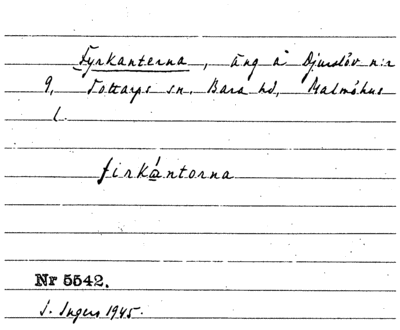 Fyrkanterna, äng å Djurslöv n:r
9, Tottarps sn, Bara hd, Malmöhus
l.
firkántorna
Nr 5542.
I. Ingers 1945.